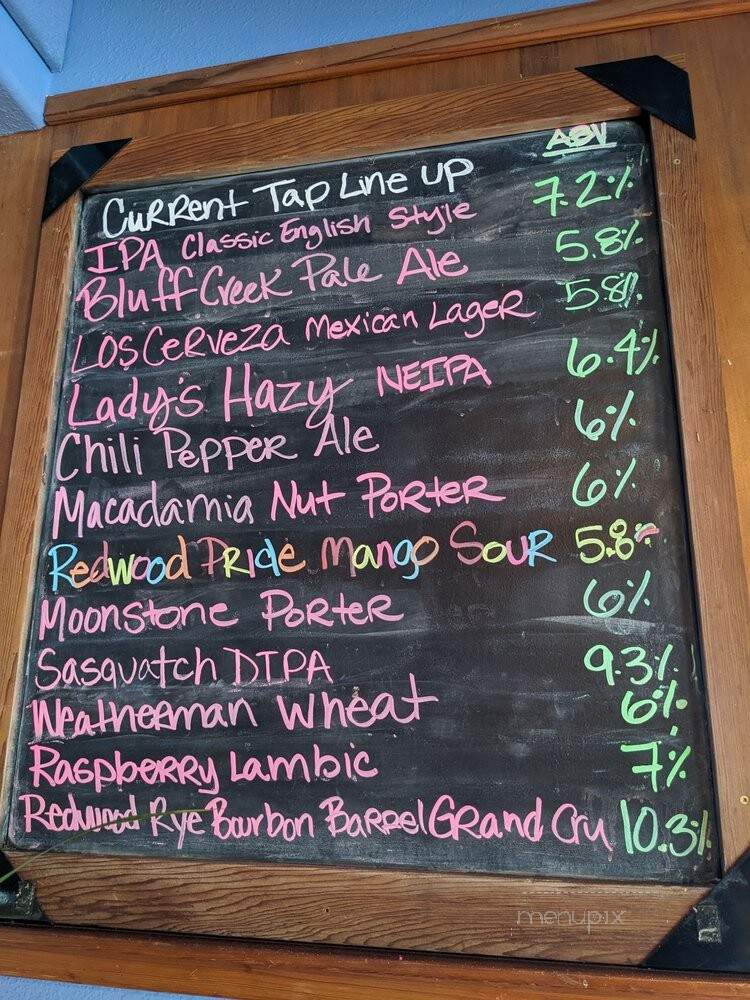 ABV
Current Tap Line up
IPA Classic English Style 7.2%
Bluff Creek Pale Ale 5.8%
Los Cerveza Mexican Lager 5.8%
Lady's Hazy NEIPA 6.4%
Chili Pepper Ale 6%
Macadamia Nut Porter 6%
Redwood Pride Mango Sour 5.8%
Moonstone Porter 6%
Sasquatch DIPA 9.3%
Weatherman Wheat 6%
Raspberry Lambic 7%
Redwood Rye Bourbon Barrel Grand Cru 10.3%
menupix